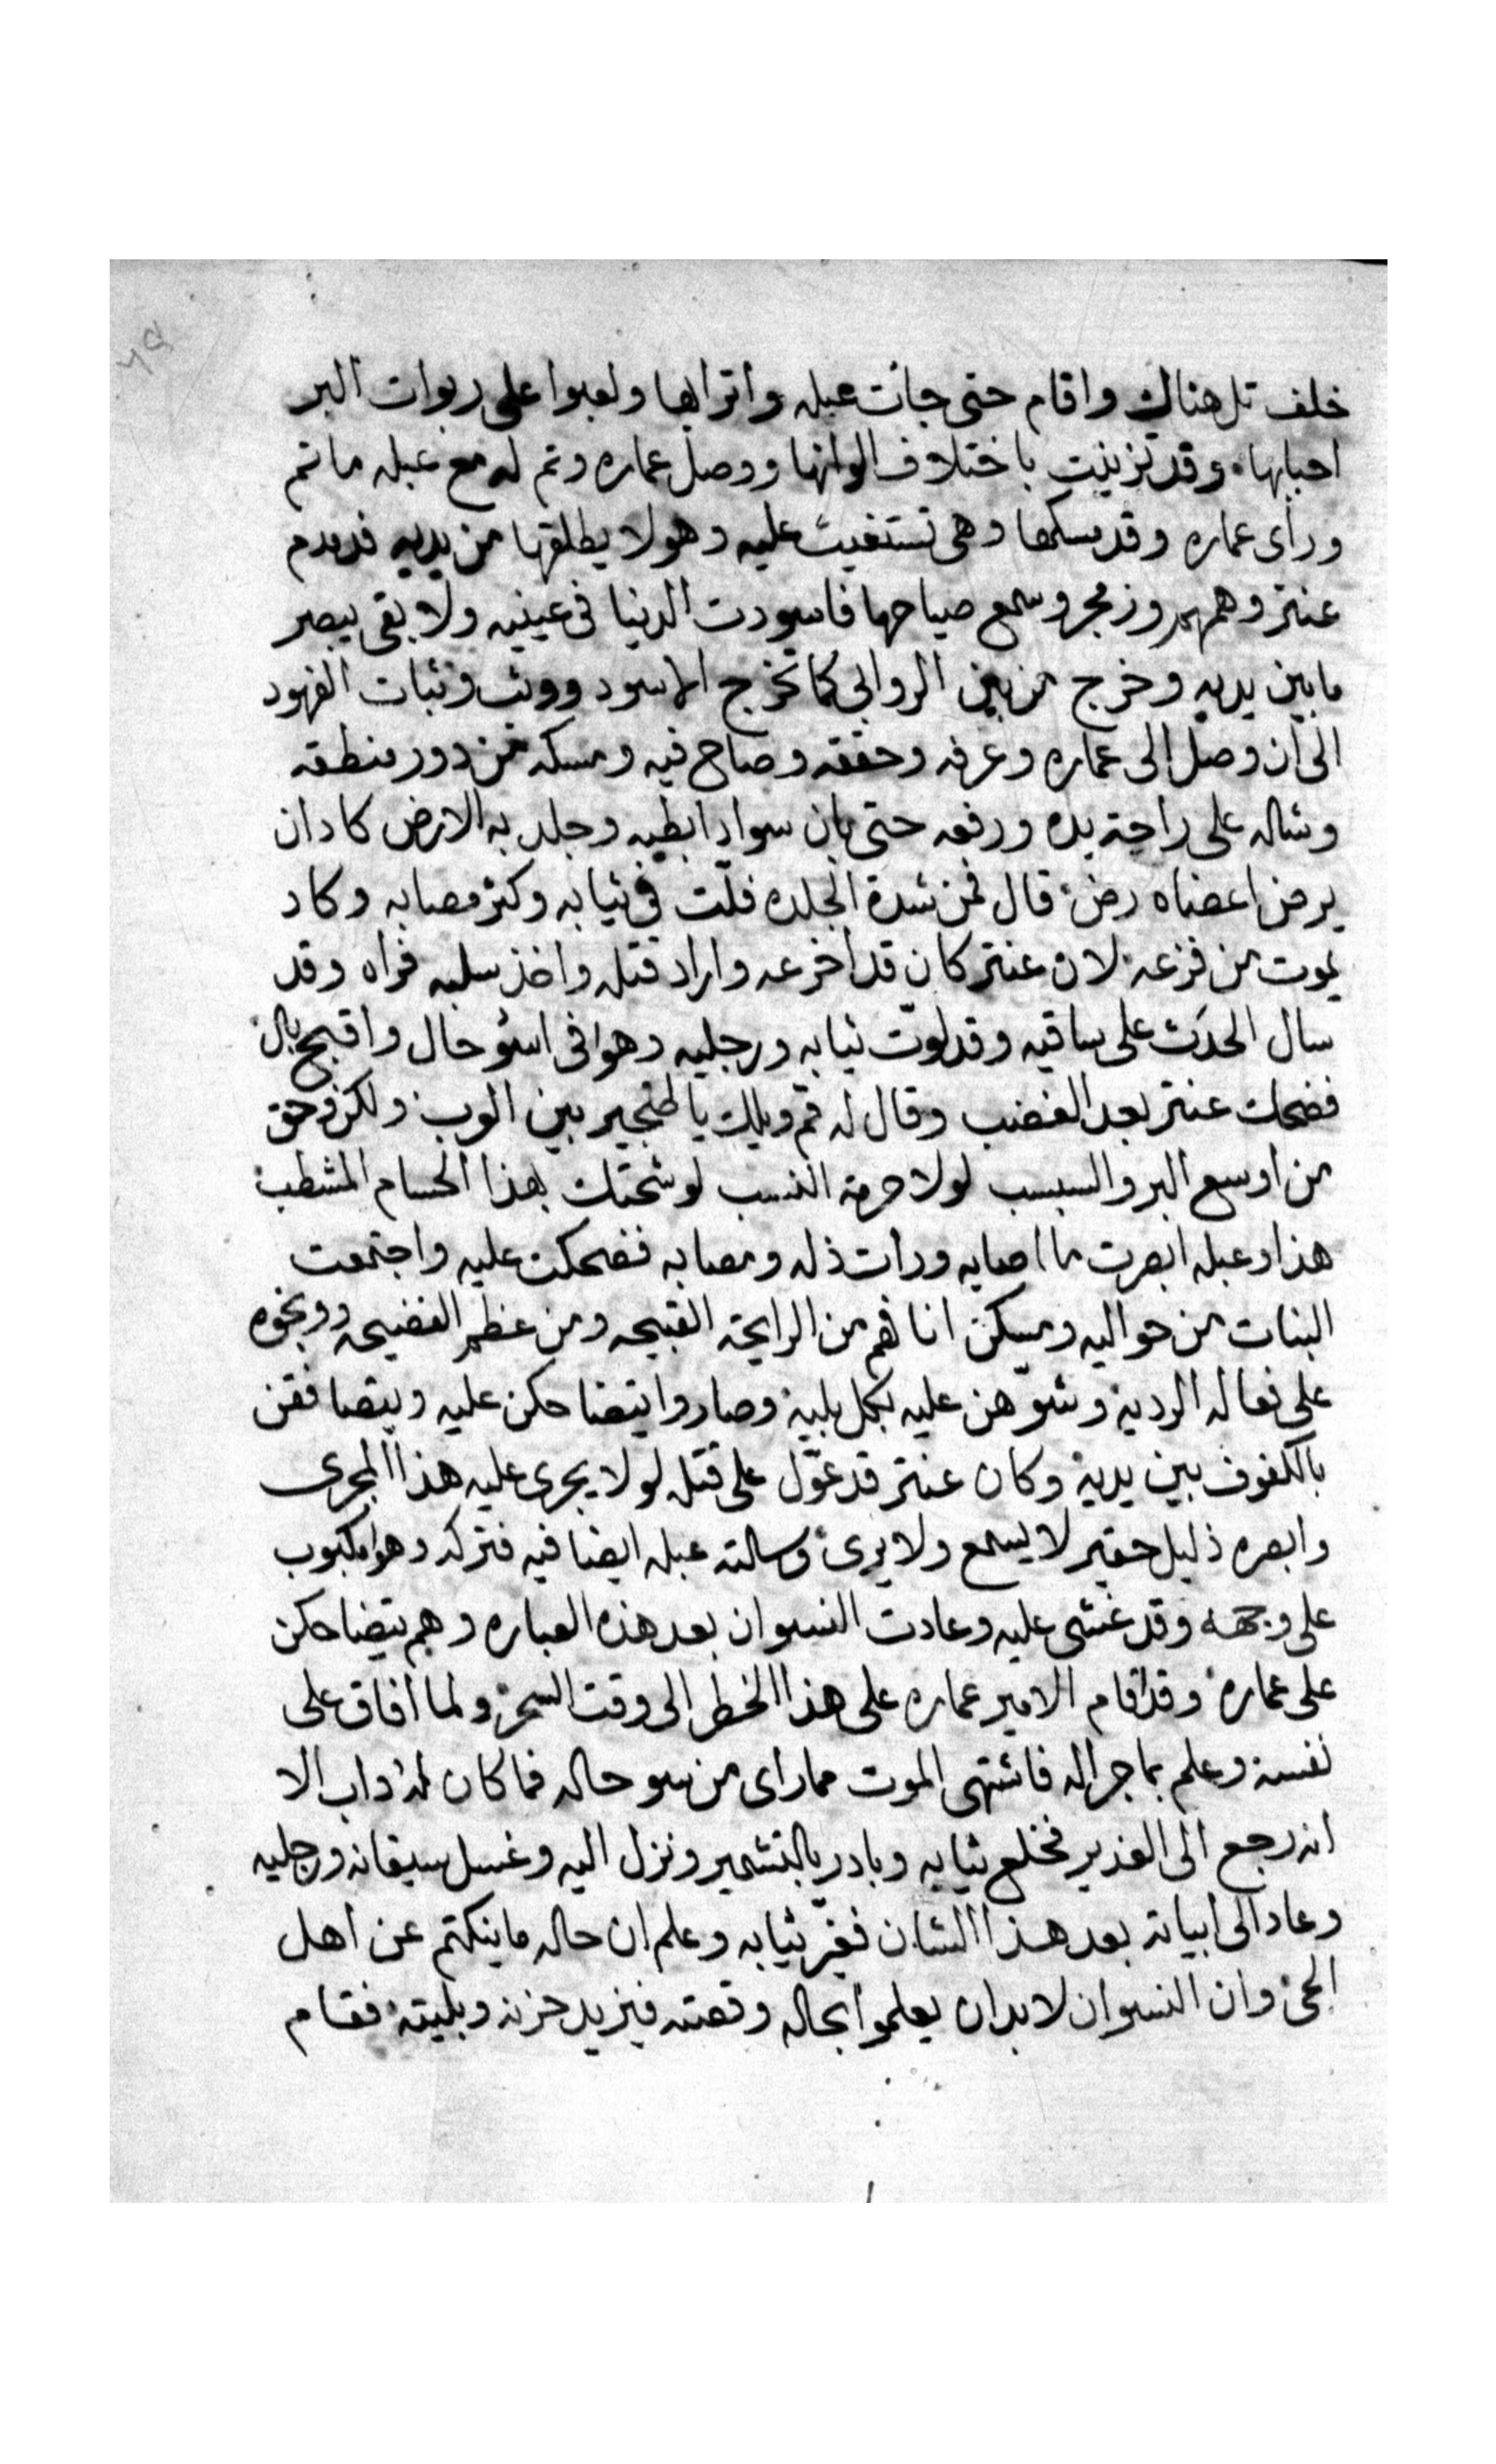 خلف تل هناك واقام حتى جات عبله واترابها ولعبوا على ربوات البر
احبابها. وقد تزينت باختلاف الوانها ووصل عماره وتم له مع عبله ما تم
وراى عماره وقد مسكها وهى تستغيث عليه وهو لا يطلقها من يديه فدمدم
عنتر وهمهمر وزمجر وسمع صياحها فاسودت الدنيا فى عينيه ولا بقى يبصر
ما بين يديه وخرج من بين الروابى كما تخرج الاسود ووثب وثبات الفهود
الى ان وصل الى عماره وعرفه وحققه وصاح فيه ومسكه من دور منطقه
وشاله على راحة يده ورفعه حتى بان سواد ابطيه وجلد به الارض كاد ان
يرض اعضاه رض قال فمن شدة الجلده فلّت فى ثيابه وكثر مصابه وكاد
يموت من فزعه لان عنتر كان قد اخرعه واراد قتله واخذ سلبه فراه وقد
سال الحدث على ساقيه وقد لوّت ثيابه ورجليه وهوا فى اسؤ حال واقبح بال
فضحك عنتر بعد الغضب وقال له قم ويلك يا طنجير بين الوب ولكن وحق
من اوسع البر والسبسب لولا حرمة النسب لوشحتك بهذا الحسام المشطب
هذا وعبله ابصرت ما اصابه ورات ذله ومصابه فضحكت عليه واجتمعت
البنات من حواليه ومسكن انافهم من الرايحة القبيحه ومن عظم الفضيحه ووبخوه
على فعاله الرديه وشوّهن عليه بكل بلية وصاروا يتضاحكن عليه ويتصافقن
بالكفوف بين يديه وكان عنتر قد عوّل على قتله لولا يجرى عليه هذا المجرى
وابصره ذليل حقير لا يسمع ولا يرى وسالته عبله ايضا فيه فتركه وهوا مكبوب
على وجهه وقد غشى عليه وعادت النسوان بعد هذه العباره وهم يتضاحكن
على عماره وقد اقام الامير عماره على هذا الخطر الى وقت السحر ولما افاق على
نفسه وعلم بما جراله فاشتهى الموت مما راى من سو حاله فما كان له داب الا
انه رجع الى الغدير فخلع ثيابه وبادر بالتشمير ونزل اليه وغسل سيقانه ورجليه
وعاد الى ابياته بعد هذا الشان فغيّر ثيابه وعلم ان حاله ما ينكتم عن اهل
الحى وان النسوان لا بد ان يعلموا بحاله وقصته فيزيد حزنه وبليته فقام